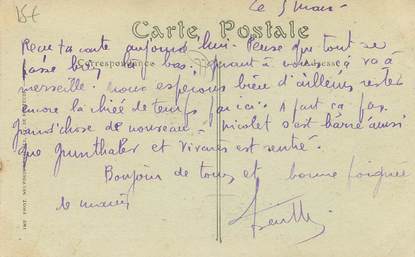 15€
Le 3 mars
Carte Postale
Reçu ta carte aujourd'hui. Pense que tout se
Correspondance
passe bien là bas, quant à nous ça va à
merveille. nous espérons bien d'ailleurs rester
encore la chiée de temps par ici. A part ça pas
grand'chose de nouveau. nicolet s'est barré ainsi
que Gunthaler et vivares est rentré.
Bonjour de tous et bonne poignée
de main